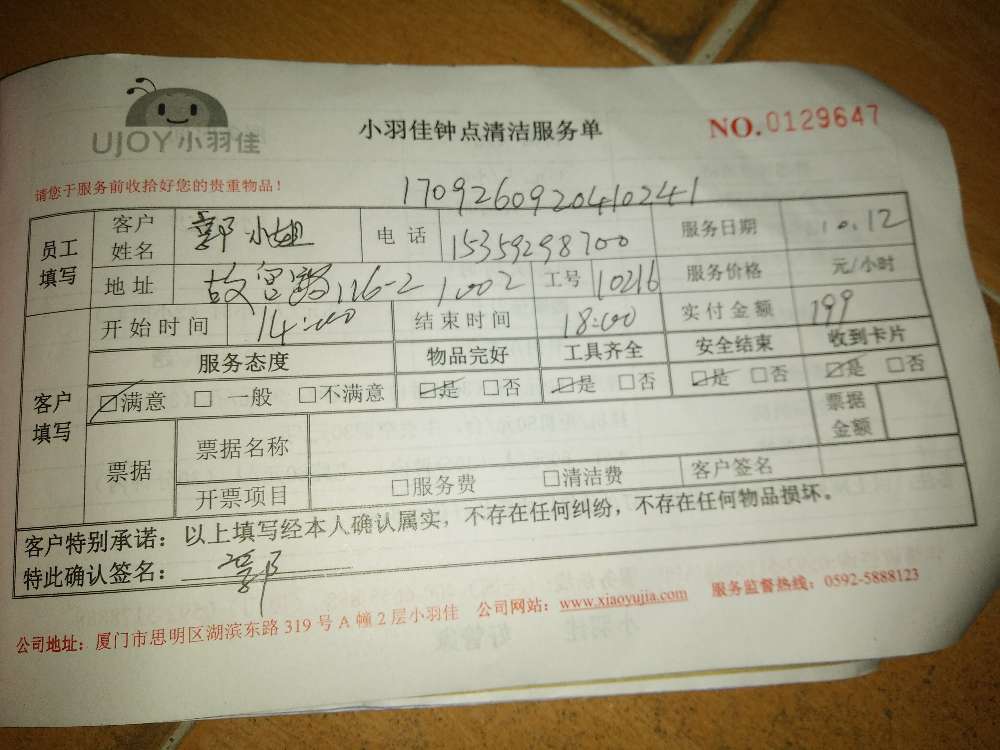 UJOY小羽佳
小羽佳钟点清洁服务单
NO.0129647
请您于服务前收拾好您的贵重物品！
1709260920410241
员工填写 客户姓名 郭小姐 电话 15359298700 服务日期 10.12
地址 故宫路116-2 1002 工号 10216 服务价格 元/小时
客户填写 开始时间 14:00 结束时间 18:00 实付金额 199
服务态度 物品完好 工具齐全 安全结束 收到卡片
☑满意 □一般 □不满意 ☑是 □否 ☑是 □否 ☑是 □否 ☑是 □否
票据 票据名称 票据金额
开票项目 □服务费 □清洁费 客户签名
客户特别承诺：以上填写经本人确认属实，不存在任何纠纷，不存在任何物品损坏。
特此确认签名：郭
公司地址：厦门市思明区湖滨东路319号A幢2层小羽佳 公司网站：www.xiaoyujia.com 服务监督热线：0592-5888123